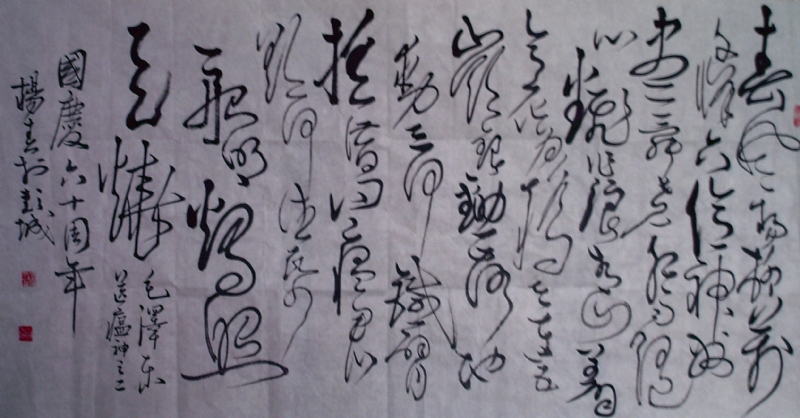 春风杨柳万
千条六亿神州
尽舜尧红雨随
心翻作浪青山着
意化为桥天连五
岭银锄落地
动三河铁臂
摇借问瘟君
欲何往纸
船明烛照
天烧
毛澤东
送瘟神之二
國慶六十周年
楊春於彭城